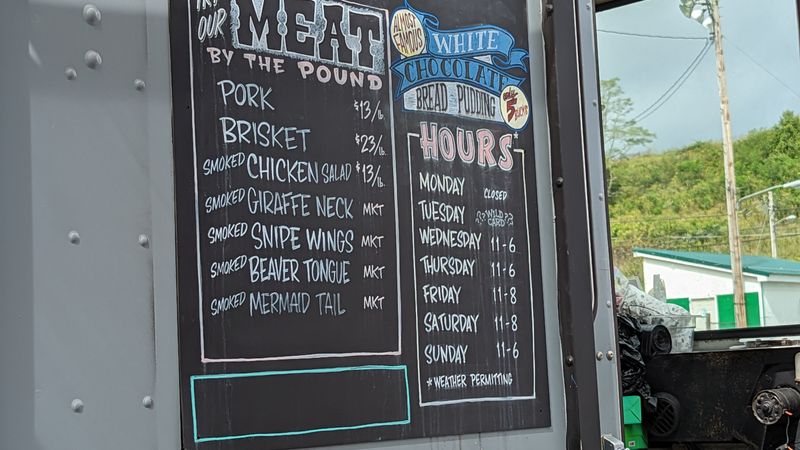 TRY
OUR
MEAT
BY THE POUND
PORK $13/lb.
BRISKET $23/lb.
SMOKED CHICKEN SALAD $13/lb.
SMOKED GIRAFFE NECK MKT
SMOKED SNIPE WINGS MKT
SMOKED BEAVER TONGUE MKT
SMOKED MERMAID TAIL MKT
ALMOST
FAMOUS
WHITE
CHOCOLATE
BREAD PUDDING
ONLY
5
HOURS*
MONDAY CLOSED
TUESDAY ?? WILD CARD ??
WEDNESDAY 11-6
THURSDAY 11-6
FRIDAY 11-8
SATURDAY 11-8
SUNDAY 11-6
*WEATHER PERMITTING